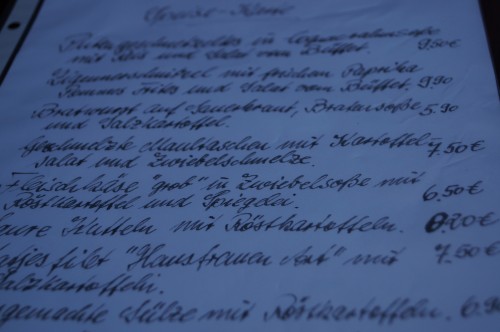 Speise-Karte
Putengeschnetzeltes in Cognacrahmsoße
mit Reis und Salat vom Büffet. 9,50€
Zigeunerschnitzel mit frischem Paprika
Pommes Frites und Salat vom Büffet. 9,90
Bratwurst auf Sauerkraut, Bratensoße
und Salzkartoffel. 5,90
Geschmelzte Maultaschen mit Kartoffel-
salat und Zwiebelschmelze. 7,50€
Fleischkäse "grob" in Zwiebelsoße mit
Röstkartoffel und Spiegelei. 6,50€
aure Kutteln mit Röstkartoffeln. 6,20€
tjes filet "Hausfrauen Art" mit 7,50€
alzkartoffeln.
gemachte Sülze mit Röstkartoffeln. 6,9